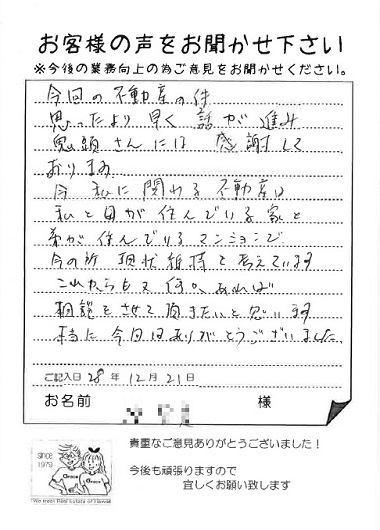 お客様の声をお聞かせ下さい
※今後の業務向上の為ご意見をお聞かせください。
今回の不動産の件
思ったより早く話が進み
鬼頭さんには 感謝して
おります
今 私に関わる不動産は
私と母が住んでいる家と
弟が住んでいるマンションで
今の所 現状維持と考えています
これからも又 何かあれば
相談をさせて頂きたいと思います
本当に今回はありがとうございました
ご記入日 28 年 12 月 21 日
お名前 様
since
1979
Grace
Grace
We treat Real Estate of Hawaii
貴重なご意見ありがとうございました！
今後も頑張りますので
宜しくお願い致します